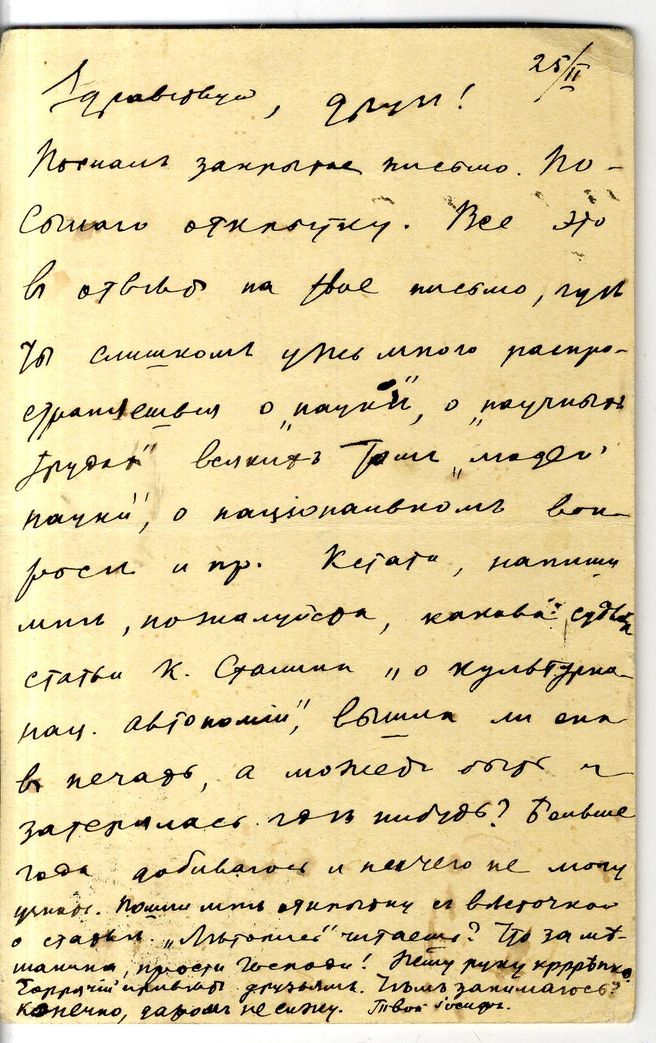 25/II
Здравствуй, друг!
Послалъ закрытое письмо. По-
сылаю открытку. Все это
въ отвѣтъ на твое письмо, гдѣ
ты слишкомъ ужъ много распро-
страняешься о „наукѣ“, о „научныхъ
трудахъ“ всякихъ „людей
науки“, о національномъ воп-
росѣ и пр. Кстати, напиши
мнѣ, пожалуйста, какова судьба
статьи К. Сталина „о культурно-
нац. автономіи“, вышла ли она
въ печать, а можетъ быть и
затерялась гдѣ нибудь? Больше
года добиваюсь и ничего не могу
узнать. Пошли мнѣ открытку съ вѣсточкой
о статьѣ. „Лѣтопись“ читаешь? Что за мѣ-
шанина, прости Господи! Жму руку крррѣпко.
Горрячій привѣтъ друзьямъ. Чѣмъ занимаюсь?
Конечно, даромъ не сижу. Твой Іосифъ.